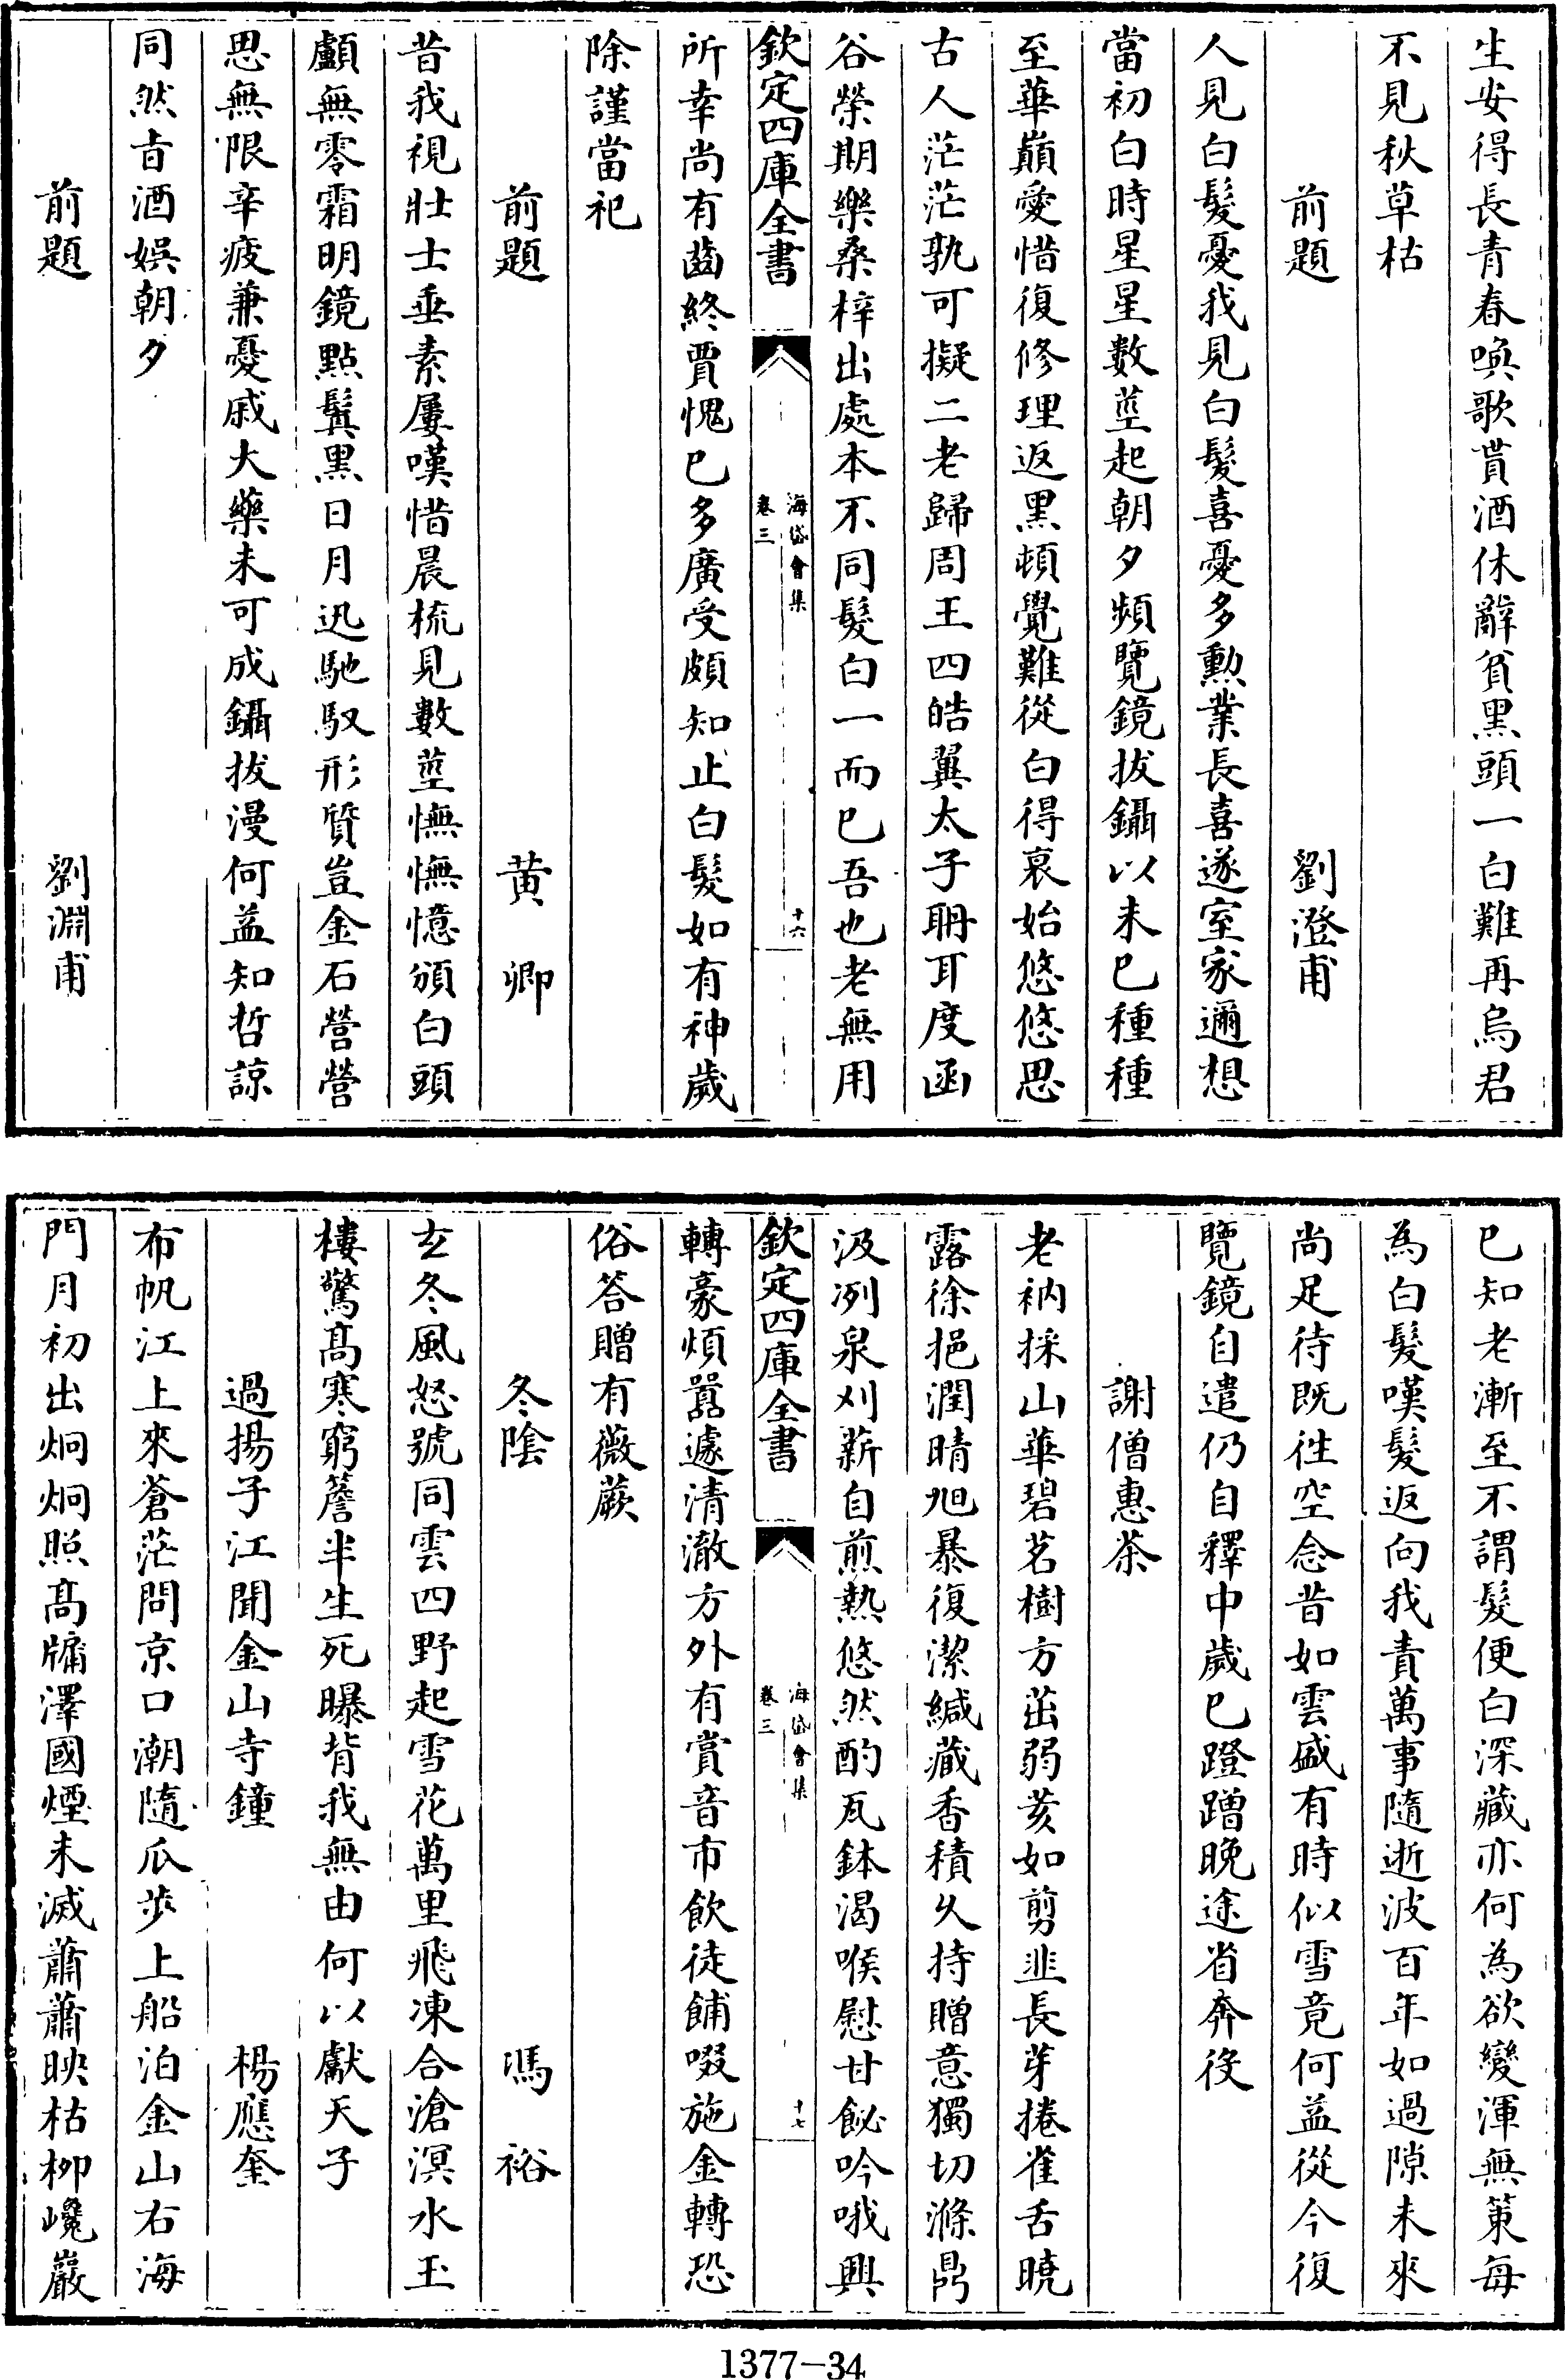 生安得長青春喚歌貰酒休辭貧黑頭一白難再烏君
不見秋草枯
前題 劉澄甫
人見白髮憂我見白髮喜憂多勲業長喜遂室家邇想
當初白時星星數莖起朝夕頻覽鏡拔鑷以未已種種
至華巔愛惜復修理返黑頓覺難從白得哀始悠悠思
古人茫茫孰可擬二老歸周王四皓翼太子耼耳度函
谷榮期樂桑梓出處本不同髮白一而已吾也老無用
欽定四庫全書
海岱會集
卷三
十六
所幸尚有齒終賈愧已多廣受頗知止白髮如有神歲
除謹當祀
前題 黄卿
昔我視壯士垂素屢嘆惜晨梳見數莖憮憮憶頒白頭
顱無零霜明鏡點鬒黒日月迅馳馭形質豈金石營營
思無限辛疲兼憂戚大藥未可成鑷拔漫何益知哲諒
同然㫖酒娯朝夕
前題 劉淵甫
已知老漸至不謂髮便白深藏亦何為欲變渾無策每
為白髮嘆髮返向我責萬事隨逝波百年如過隙未來
尚足待既徃空念昔如雲盛有時似雪竟何益從今復
覽鏡自遣仍自釋中歲已蹬蹭晚途省奔役
謝僧惠茶
老衲採山華碧茗樹方茁弱荄如剪韭長芽捲雀舌曉
露徐挹潤晴旭暴復潔緘藏香積久持贈意獨切滌鼎
汲冽泉刈薪自煎熱悠然酌瓦鉢渴喉慰甘飶吟哦興
欽定四庫全書
海岱會集
卷三
十七
轉豪煩囂遽清澈方外有賞音市飲徒餔啜施金轉恐
俗答贈有薇蕨
冬隂 馮裕
玄冬風怒號同雲四野起雪花萬里飛凍合滄溟水玉
樓驚髙寒窮簷半生死曝背我無由何以獻天子
過揚子江聞金山寺鐘 楊應奎
布帆江上來蒼茫問京口潮隨瓜步上船泊金山右海
門月初出炯炯照髙牗澤國煙未滅蕭蕭映枯栁巉巖
1377—34